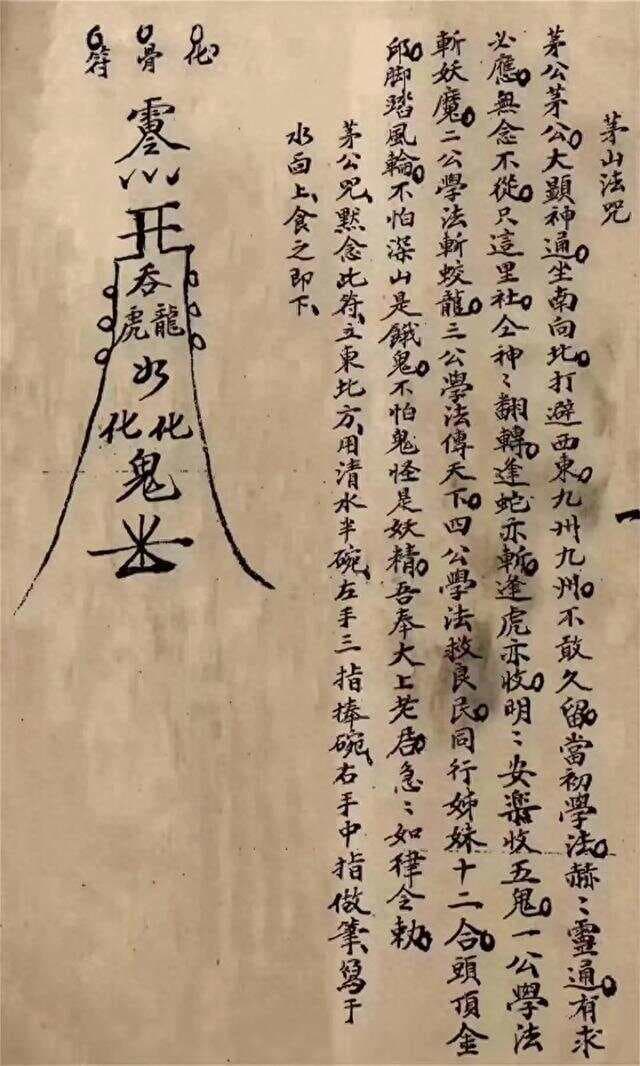 茅山法咒
茅公茅公。大顯神通。坐南向北。打避西東。九州九州。不敢久留。當初學法。赫〻靈通。有求
必應。無念不從。只這里社。仝神〻翻轉。逢蛇亦斬。逢虎亦收。明〻安樂收五鬼。一公學法
斬妖魔。二公學法斬蛟龍。三公學法傳天下。四公學法救良民。同行姊妹十二合。頭頂金
邱。脚踏風輪。不怕深山是餓鬼。不怕鬼怪是妖精。吾奉大上老君。急〻如律令勅。
茅公咒、默念此符、立東北方、用清水半碗、左手三指捧碗、右手中指做筆、寫于
水面上、食之即下、
化骨符
開
吞
龍虎
化化
鬼